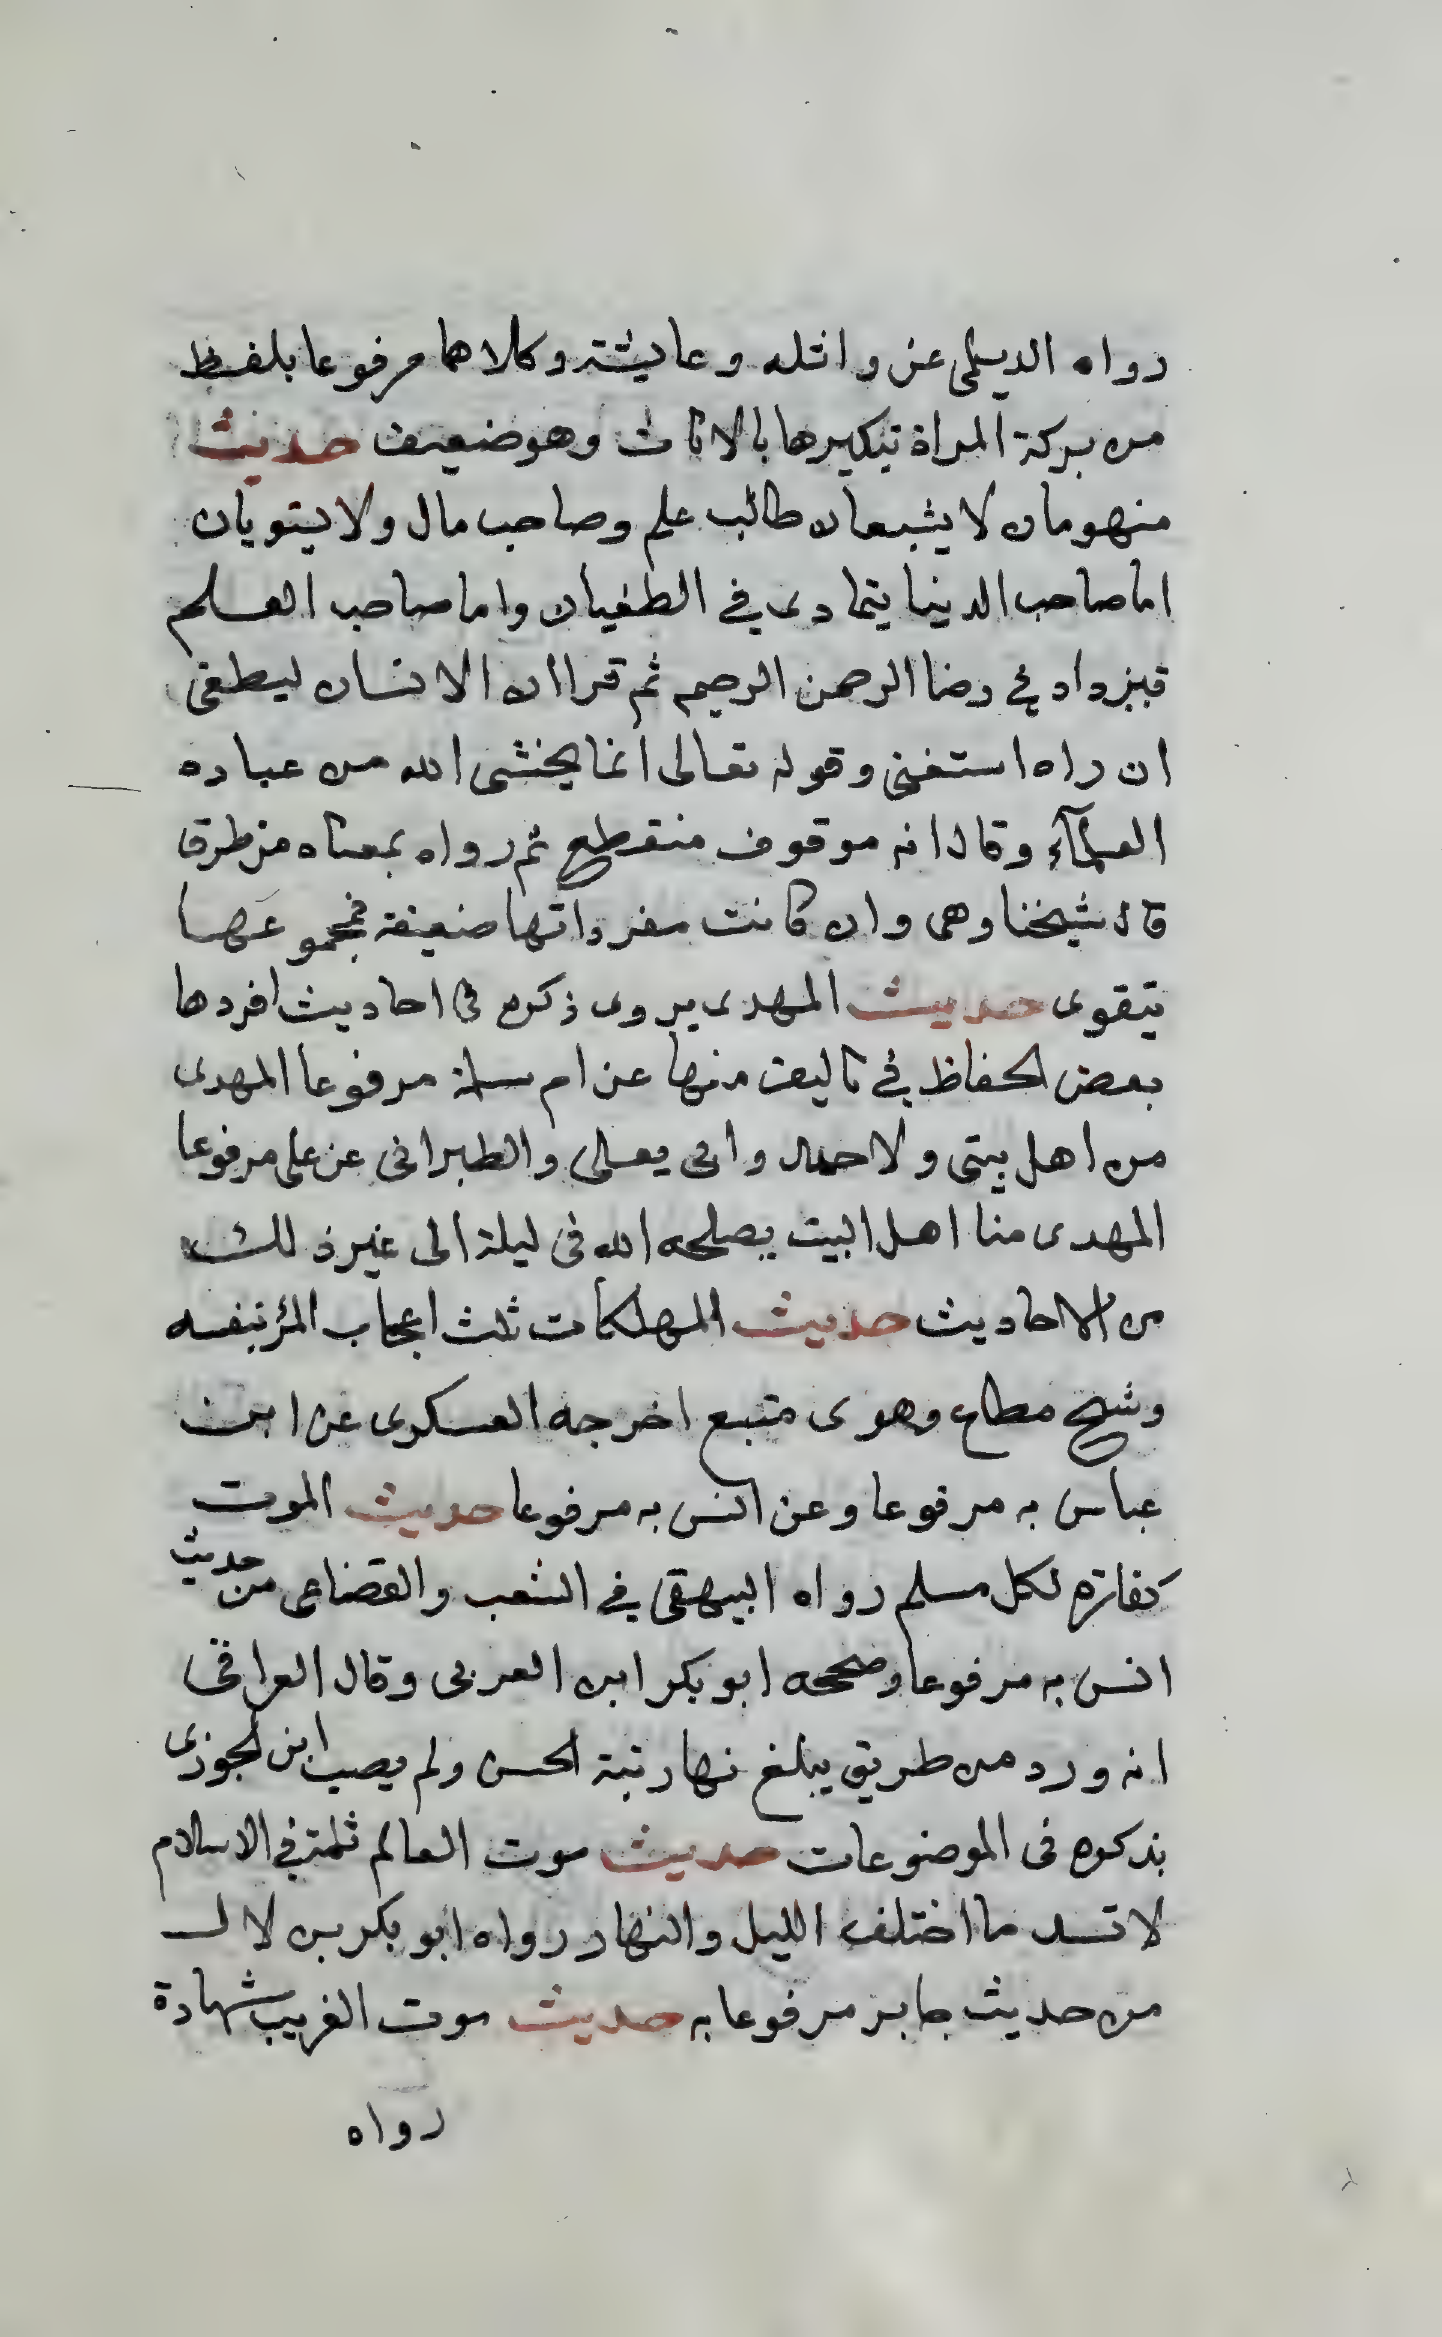 رواه الديلمى عن واثله وعايشة وكلاهما مرفوعا بلفظ
من بركة المراة تبكيرها بالاناث وهو ضعيف حديث
منهومان لا يشبعان طالب علم وصاحب مال ولا يستويان
اما صاحب الدينا يتمادى في الطغيان واما صاحب العلم
فيزداد في رضا الرحمن الرحيم ثم قرا ان الانسان ليطغى
ان راه استغنى وقوله تعالى انما يخشى الله من عباده
العلمآء وقال انه موقوف منقطع ثم رواه بمعناه من طرق
قال شيخنا وهى وان كانت مفرداتها ضعيفة فمجموعها
يتقوى حديث المهدى يروى ذكره في احاديث افردها
بعض الحفاظ في تاليف منها عن ام سلمة مرفوعا المهدى
من اهل بيتى ولاحمد وابى يعلى والطبرانى عن على مرفوعا
المهدى منا اهل البيت يصلحه الله فى ليلة الى غير ذلك
من الاحاديث حديث المهلكات ثلث اعجاب المرء بنفسه
وشح مطاع وهوى متبع اخرجه العسكرى عن ابن
عباس به مرفوعا وعن انس به مرفوعا حديث الموت
كفارة لكل مسلم رواه البيهقى في الشعب والقضاعى من حديث
انس به مرفوعا وصححه ابو بكر ابن العربى وقال العراقى
انه ورد من طريق يبلغ بها رتبة الحسن ولم يصب ابن الجوزى
بذكره فى الموضوعات حديث موت العالم ثلمة في الاسلام
لا تسد ما اختلف الليل والنهار رواه ابو بكر بن لال
من حديث جابر مرفوعا به حديث موت الغريب شهادة
رواه